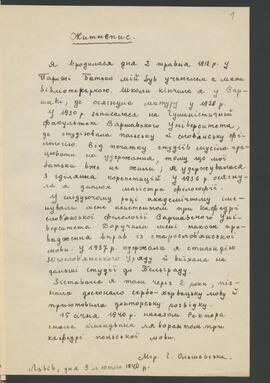 1
Життєпис.
Я вродилася дня 2 травня 1912 р. у
Парижі. Батько мій був учителем а мати
бібліотекаркою. Школи кінчила я у Вар-
шаві, де осягнула матуру у 1928 р.
У 1930 р. записалася на Гуманістичний
факультет Варшавського Університета,
де студіювала польську й словянську фі-
лологію. Від початку студій мусіла пра-
цювати на удержання, тому що мої
батьки вже не жили; я удержувалася
з уділяння корепетицій. У 1936 р. осягну-
ла я диплом магістра філології.
У слідуючому році академічному іме-
нували мене асистентом при катедрі
словянської філології Варшавського Уні-
верситета. Доручили мені також про-
вадження вправ із старословянської
мови. У 1937 р. одержала я стипендію
Югословянського Уряду й виїхала на
дальші студії до Білграду.
Зіставала я там через 2 роки, піз-
нала досконало сербо-хорватську мову й
приготовила докторську розвідку.
15 січня 1940 р. наказом Ректора
стала іменувана лаборантом при
катедрі польської мови.
Мґр. Г. Ольшевська
Львів, дня 3 лютого 1940 р.